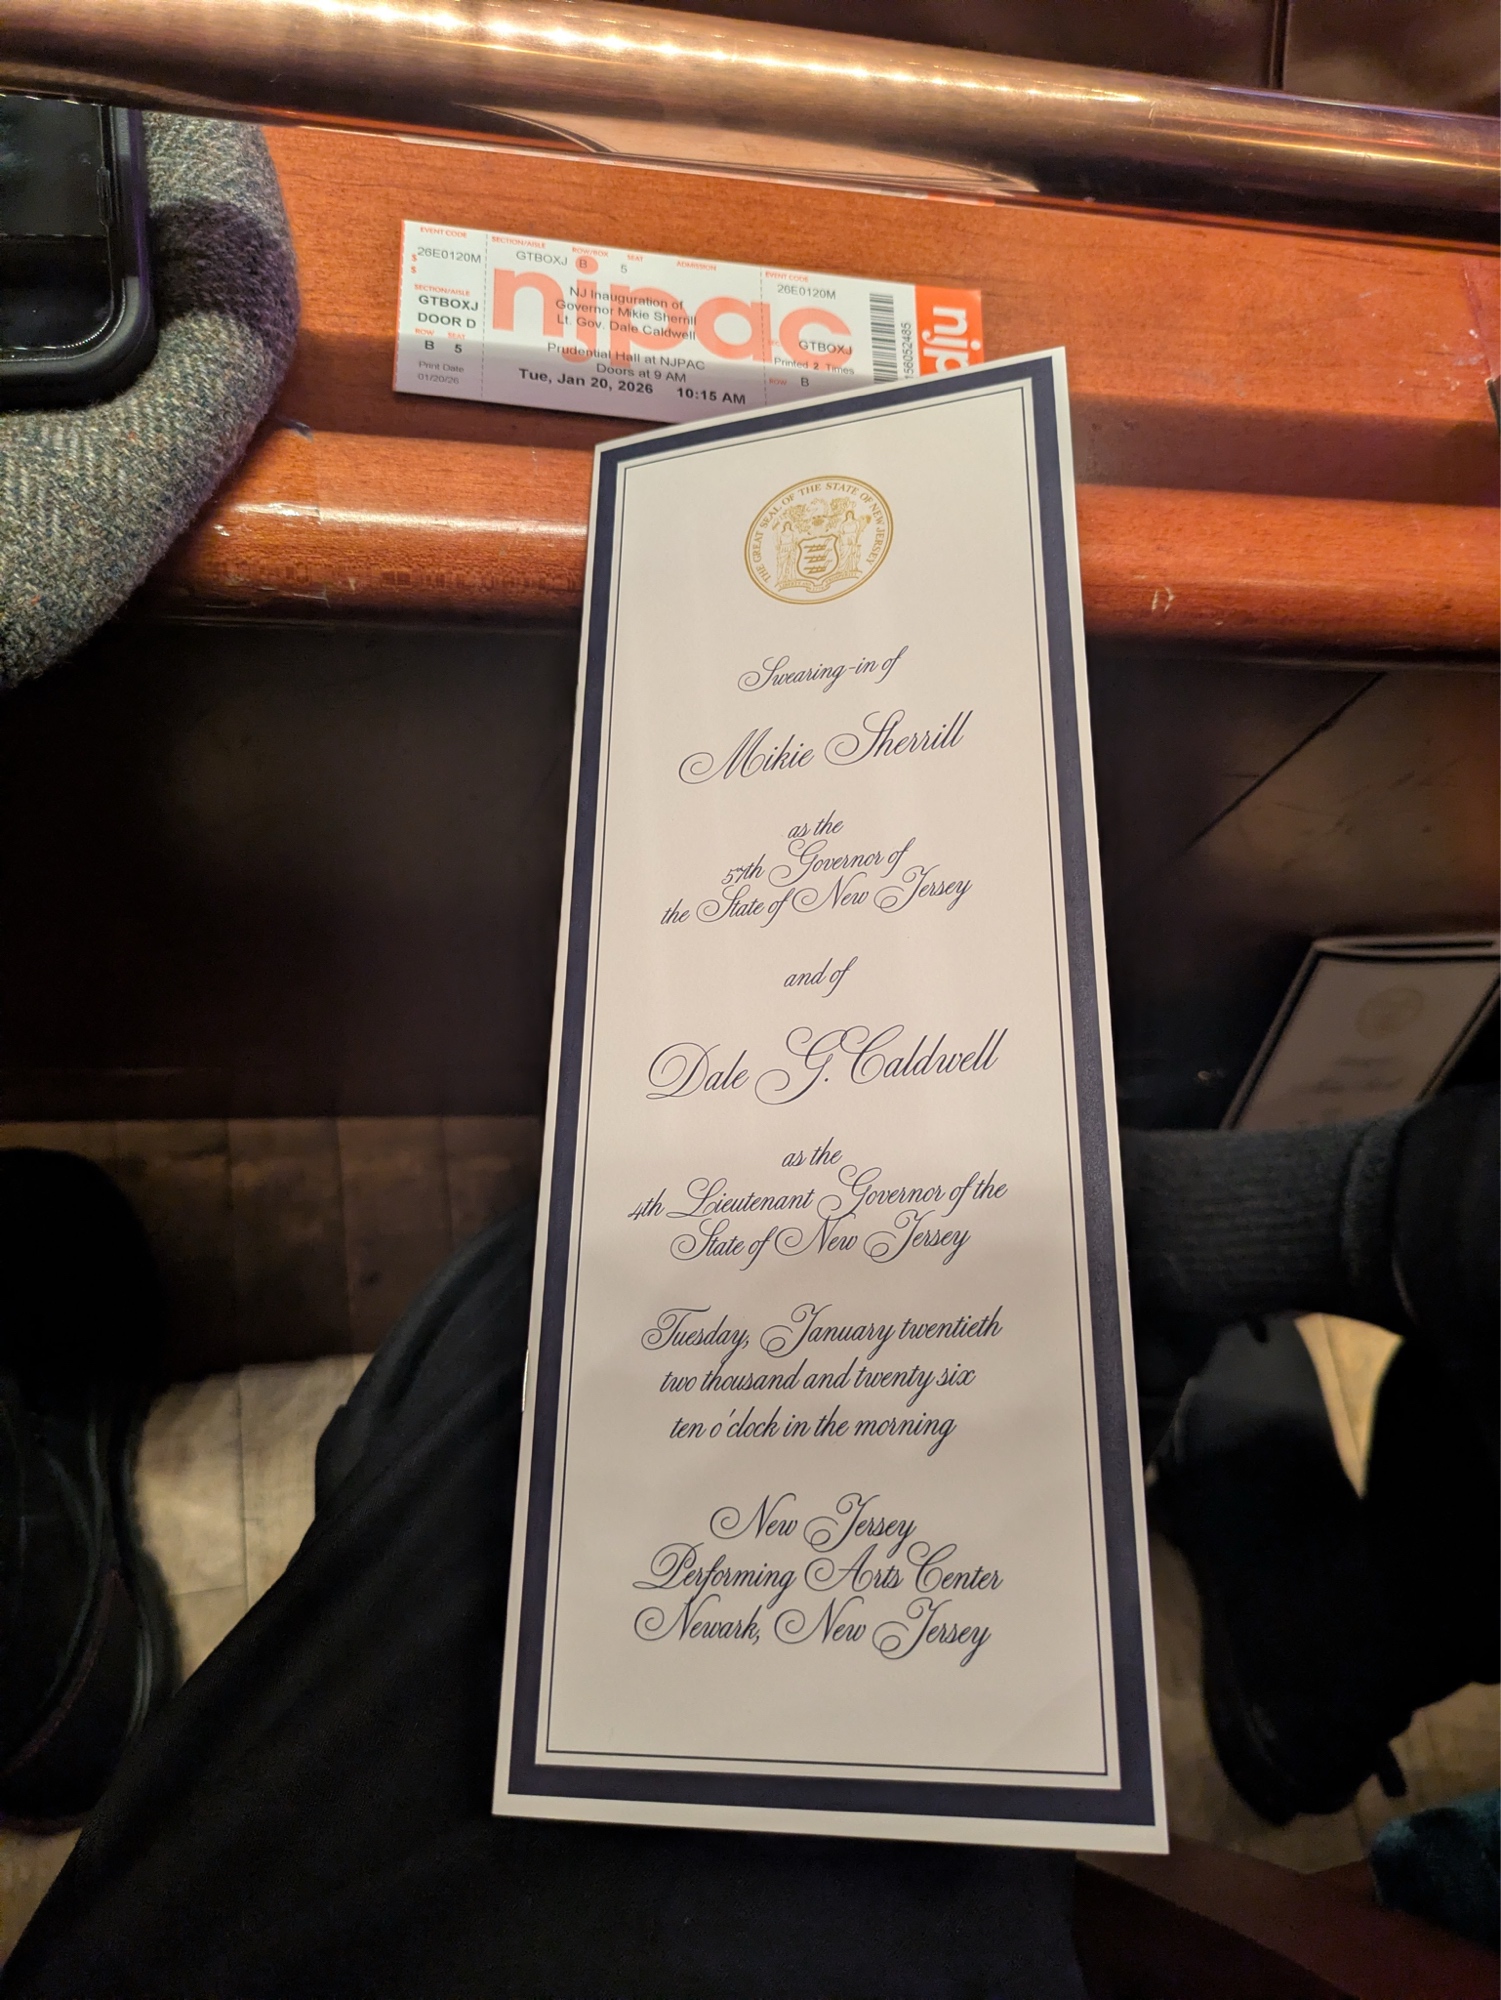 EVENT CODE
26E0120M
$
$
SECTION/AISLE
GTBOXJ
DOOR D
ROW SEAT
B 5
Print Date
01/20/26
SECTION/AISLE ROW/BOX SEAT ADMISSION
GTBOXJ B 5
njpac
NJ Inauguration of
Governor Mikie Sherrill
Lt. Gov. Dale Caldwell
Prudential Hall at NJPAC
Doors at 9 AM
Tue, Jan 20, 2026 10:15 AM
EVENT CODE
26E0120M
GTBOXJ
Printed 2 Times
ROW B
THE GREAT SEAL OF THE STATE OF NEW JERSEY
Swearing-in of
Mikie Sherrill
as the
57th Governor of
the State of New Jersey
and of
Dale G. Caldwell
as the
4th Lieutenant Governor of the
State of New Jersey
Tuesday, January twentieth
two thousand and twenty six
ten o'clock in the morning
New Jersey
Performing Arts Center
Newark, New Jersey